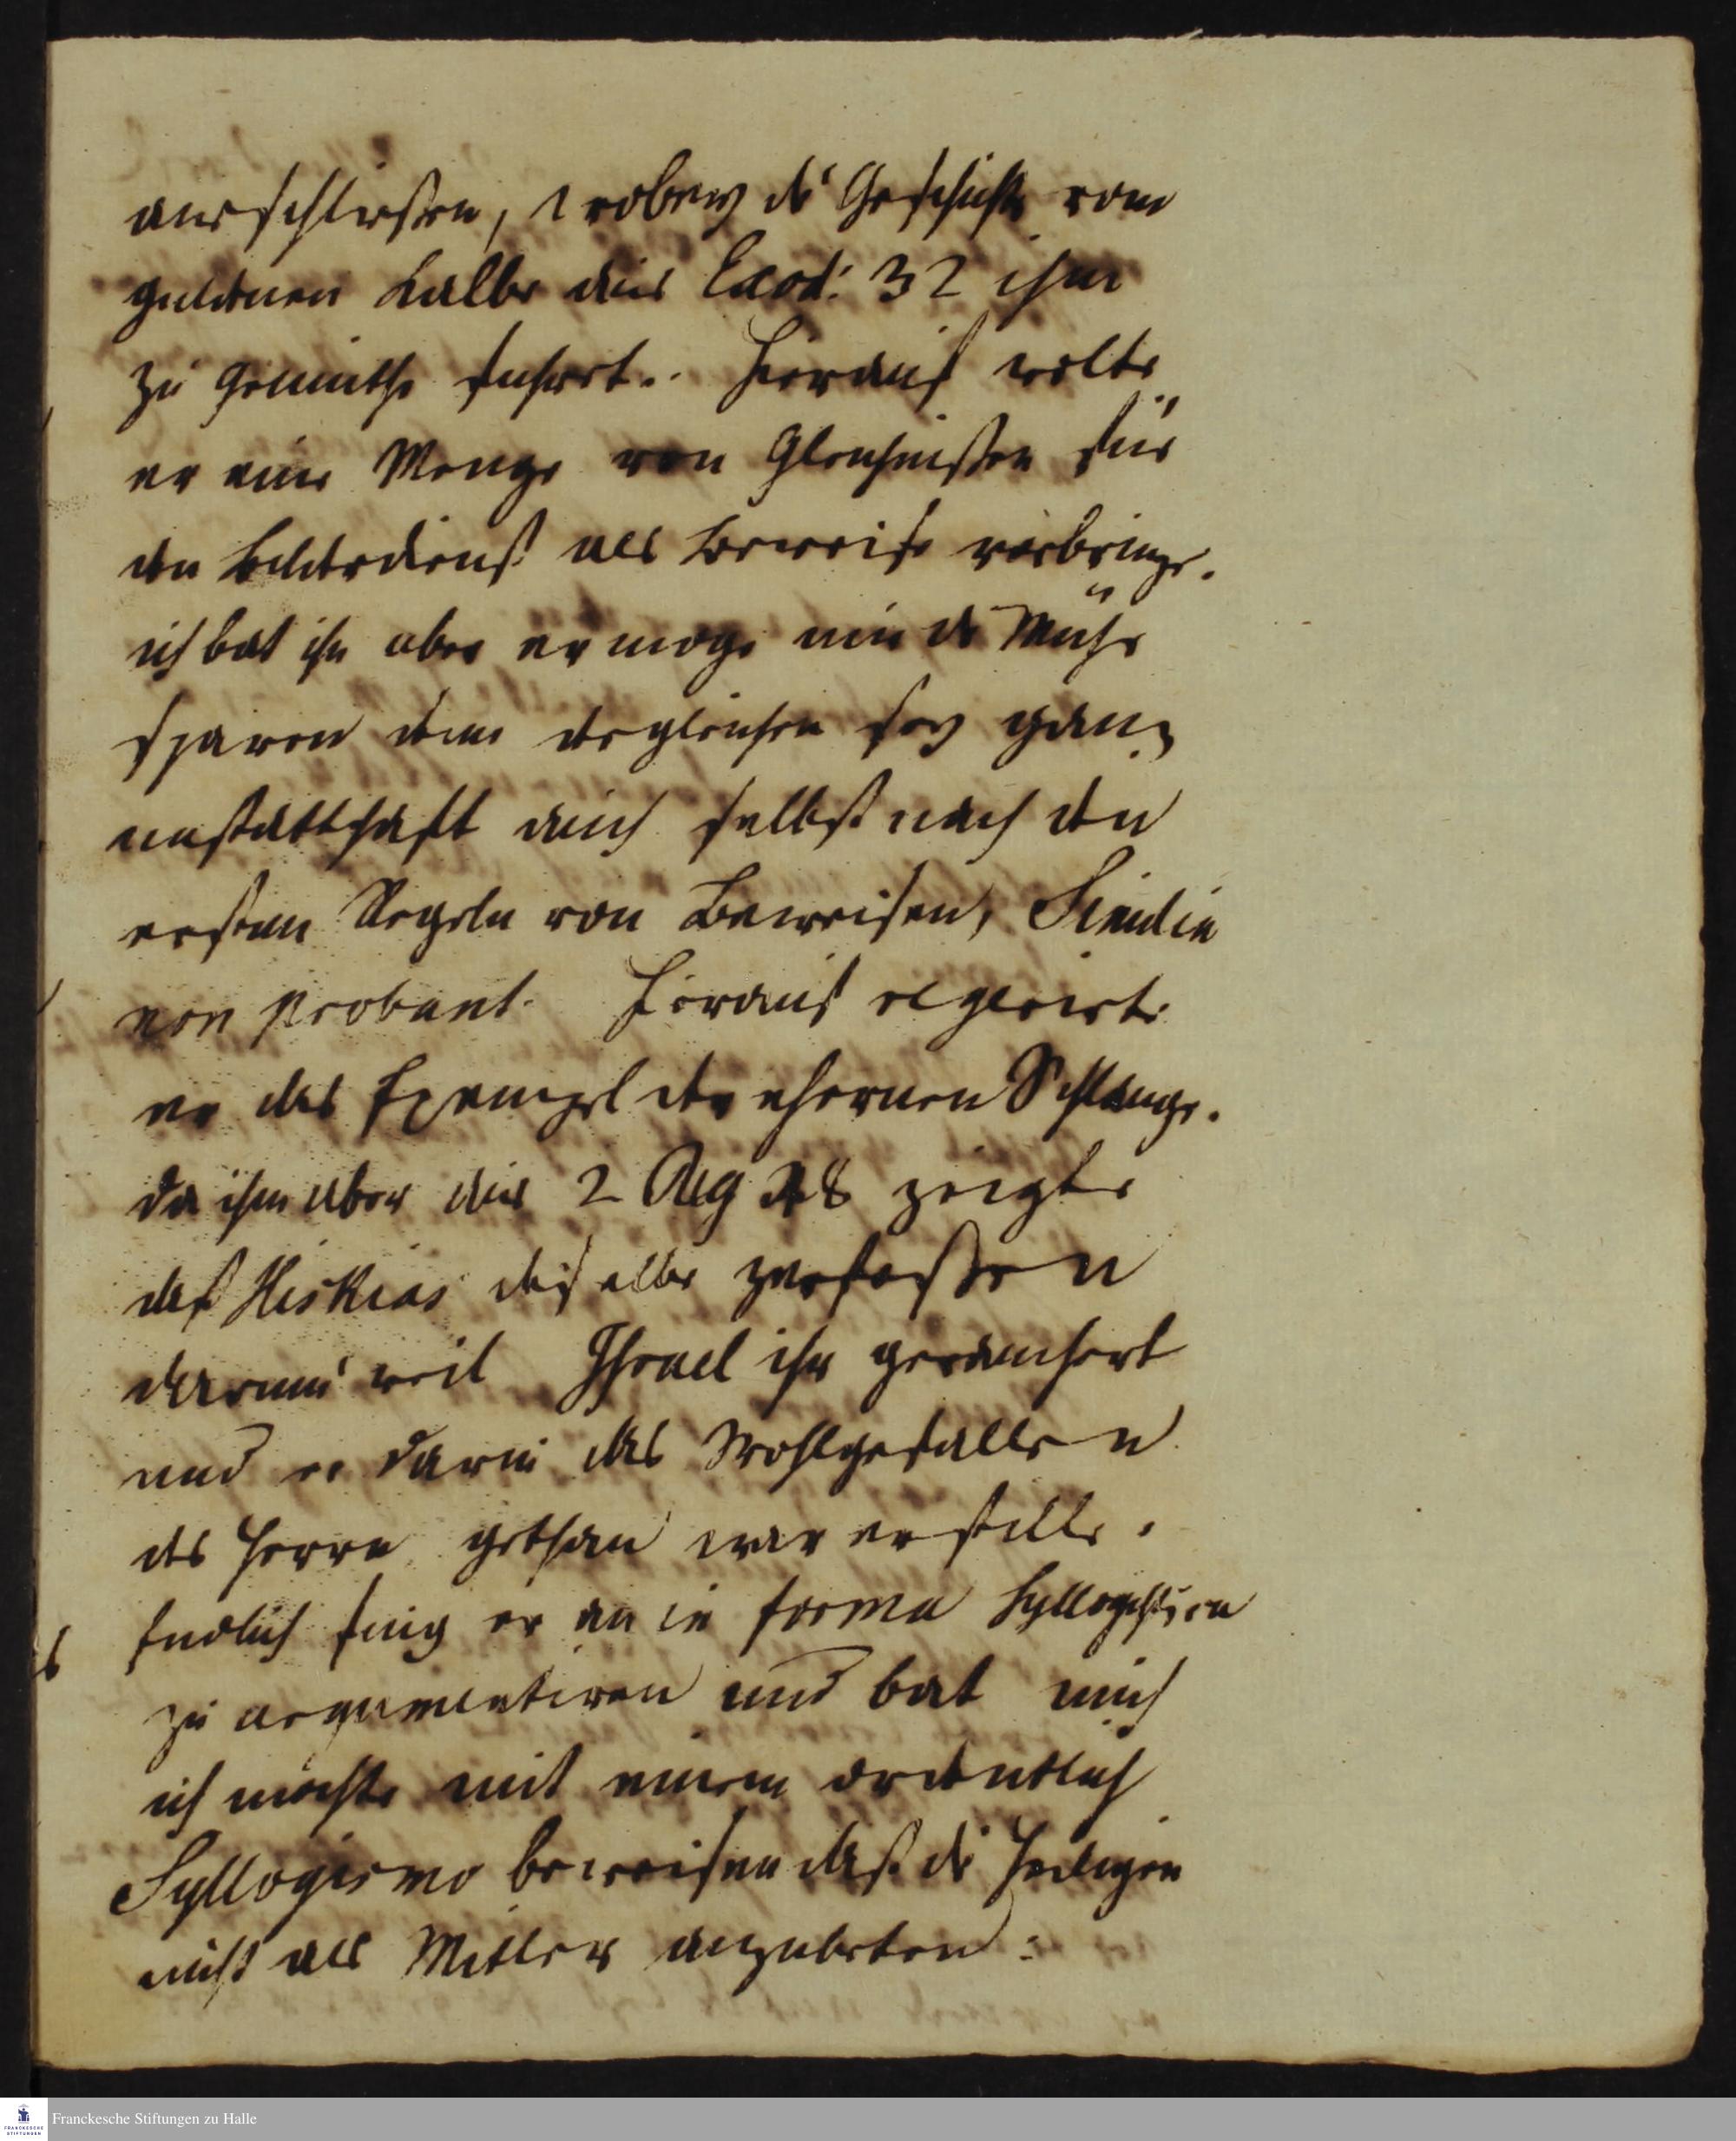 ausschließen, wobey die Geschichte vom
guldenen Kalbe aus Exod: 32 ihm
zu Gemüthe fuhret. Hierauf wolte
er eine Menge von Gleichnißen für
den Bilderdienst als Beweise vorbringe.
ich bat ihn aber er moge nur die Mühe
sparen denn dergleichen sey ganz
unstatthaft auch selbst nach den
ersten Regeln von Beweisen, Similia
non probant. Hierauf regerirte
er das Exempel der ehernen Schlange.
da ihm aber aus 2 Reg 18 zeigte
daß Hiskias dieselbe zerstoßen
darum weil Israel ihr gerauchert
und er darin das Wohlgefallen
des Herrn gethan war er stille.
Endlich fing er an in forma Syllogistica
zu argumentiren und bat mich
ich mochte mit einem ordentlich
Syllogismo beweisen daß die Heiligen
nicht als Mitler anzubeten:
Franckesche Stiftungen zu Halle